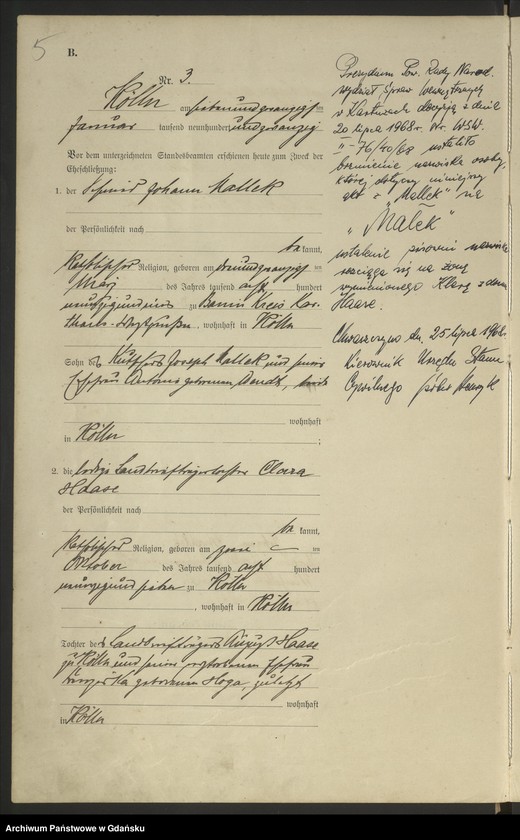 5
B.
Nr. 3.
Kölln am siebenundzwanzigsten
Januar tausend neunhundert undzwanzig
Vor dem unterzeichneten Standesbeamten erschienen heute zum Zweck der
Eheschließung:
1. der Schmied Johann Mallek
der Persönlichkeit nach
be kannt,
katholischer Religion, geboren am dreiundzwanzigsten
März des Jahres tausend acht hundert
neunzig zu Kreis Kar-
thaus Westpreußen, wohnhaft in Kölln
Sohn des Joseph Mallek und seiner
Ehefrau geborenen beide
wohnhaft
in Kölln ;
2. die ledige Clara
Haase
der Persönlichkeit nach
be kannt,
katholischer Religion, geboren am zwei ten
Oktober des Jahres tausend acht hundert
neunzigund sieben zu Kölln
, wohnhaft in Kölln
Tochter des August Haase
zu Kölln und seiner verstorbenen Ehefrau
geborenen Hoga, zuletzt
wohnhaft
in Kölln
Prezydium Pow. Rady Narod.
wydział Spraw Wewnętrznych
w Kartuzach decyzją z dnia
20 lipca 1968 r. Nr. WSW.
II - 76/40/68 ustaliło
brzmienie nazwiska osoby,
której dotyczy niniejszy
akt z "Mallek" na
"Małek"
ustalenie pisowni nazwiska
rozciąga się na żonę
wymienionego Klarę z domu
Haase.
Chwaszczyno dn. 25 lipca 1968
Kierownik Urzędu Stanu
Cywilnego
Archiwum Państwowe w Gdańsku